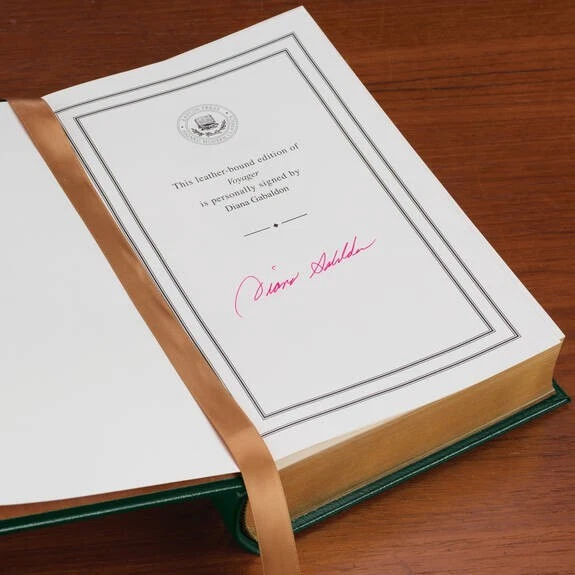 EASTON PRESS
This leather-bound edition of
Voyager
is personally signed by
Diana Gabaldon
Diana Gabaldon